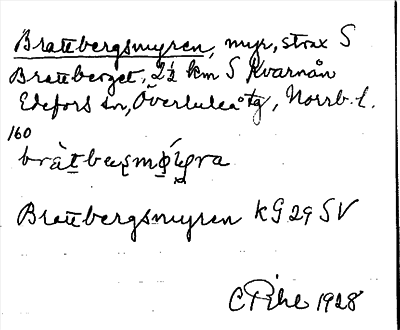 Brattbergsmyren, myr, strax S
Brattberget, 2½ km S Kvarnån
Edefors sn, Överluleå tg, Norrb. l.
160
Brattbergsmyren kG 29 SV
C Pihl 1928